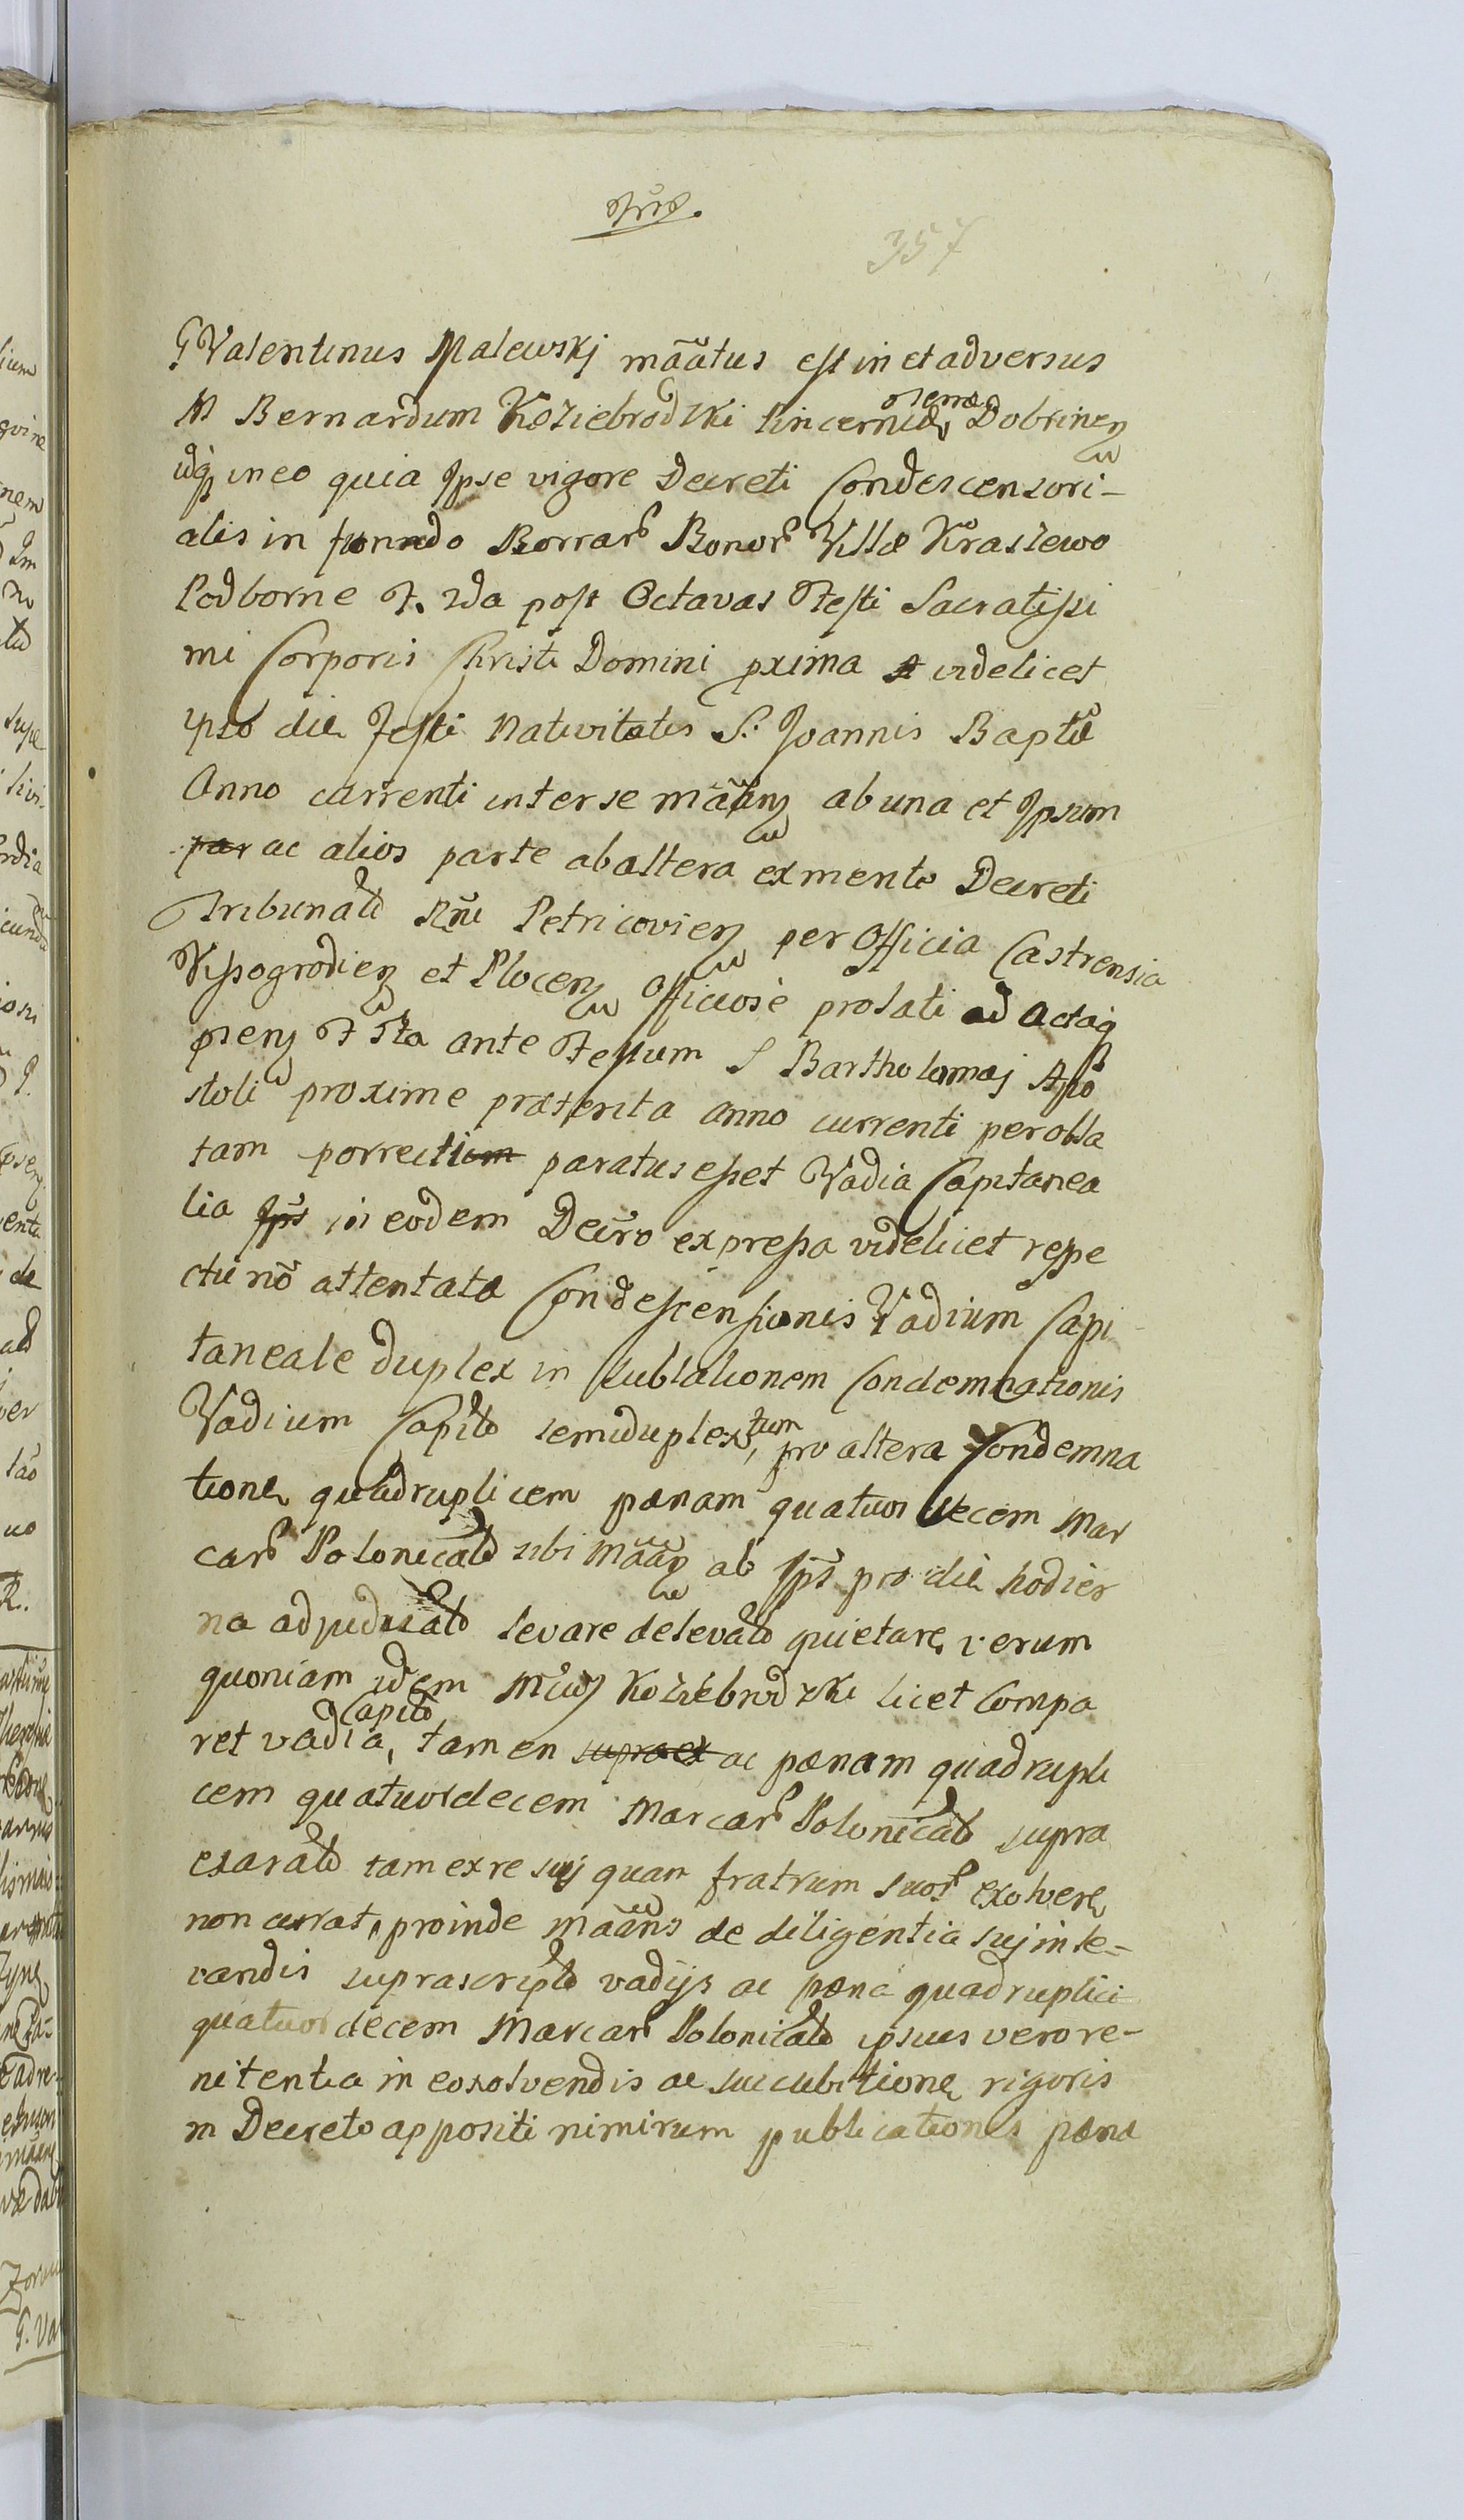 357
G Valentinus Malewskj mããtus est in et adversus
M Bernardum Koziebrodzki Pincernid, Terræ Dobrinen
idq in eo quia Ipse vigore Decreti Condescensori-
alis in fundo Bonor Villæ Kraszewo
Podborne F. 2da post Octavas Festi Sacratissi
mi Corporis Christi Domini pxima videlicet
ipso die Festi Nativitatis S. Joannis Baptæ
Anno currenti inter se mããn ab una et Ipsum
par ac alios parte ab altera ex mente Decreti
Tribunal Rñi Petricovien per Officia Castrensia
Vissogrodien et Plocen Officiose prolati ad Actaq
psen F 5ta ante Festum S Bartholomæj Apo
stoli proxime præterita anno currenti per obla
tam porrecti paratus esset Vadia Capitanea
lia Ips in eodem Decro expressa videlicet respe
ctu nõ attentatæ Condescensionis Vadium Capi
taneale duplex in sublationem Condemnationis
Vadium Capital semiduplex, tum pro altera Condemna
tione quadruplicem pœnam quatuor decem Mar
car Polonical sibi mããn ab Ips pro die hodier
na adjudical levare de leval quietare, verum
quoniam idem Mcus Koziebrodzki licet compa
ret vadia, Capital tamen supra ex ac pœnam quadrupli
cem quatuordecem Marcar Polonical supra
exaral tam ex re suj quam fratrum suor exolvere
non currat, proinde mããns de diligentia suj in le-
vandis suprascript vadijs ac pœna quadruplici
quatuor decem Marcar Polonical ipsius vero re-
nitentia in exolvendis ac succubitione rigoris
in Decreto appositi nimirum publicationis pœnæ